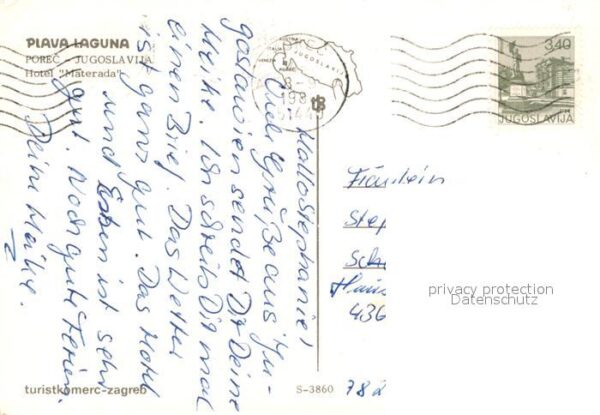 PLAVA LAGUNA
POREČ - JUGOSLAVIJA
Hotel "Materada"
Hallo Stephanie!
Viele Grüße aus Ju-
goslawien sendet Dir Deine
Meike. Ich schreib Dir mal
einen Brief. Das Wetter
ist ganz gut. Das Hotel
und Essen ist sehr
gut. Noch gute Ferien.
Deine Meike.
turistkomerc-zagreb
S-3860
3,40
JUGOSLAVIJA
Fräulein
Step
Sch
Haus
436
782
privacy protection
Datenschutz